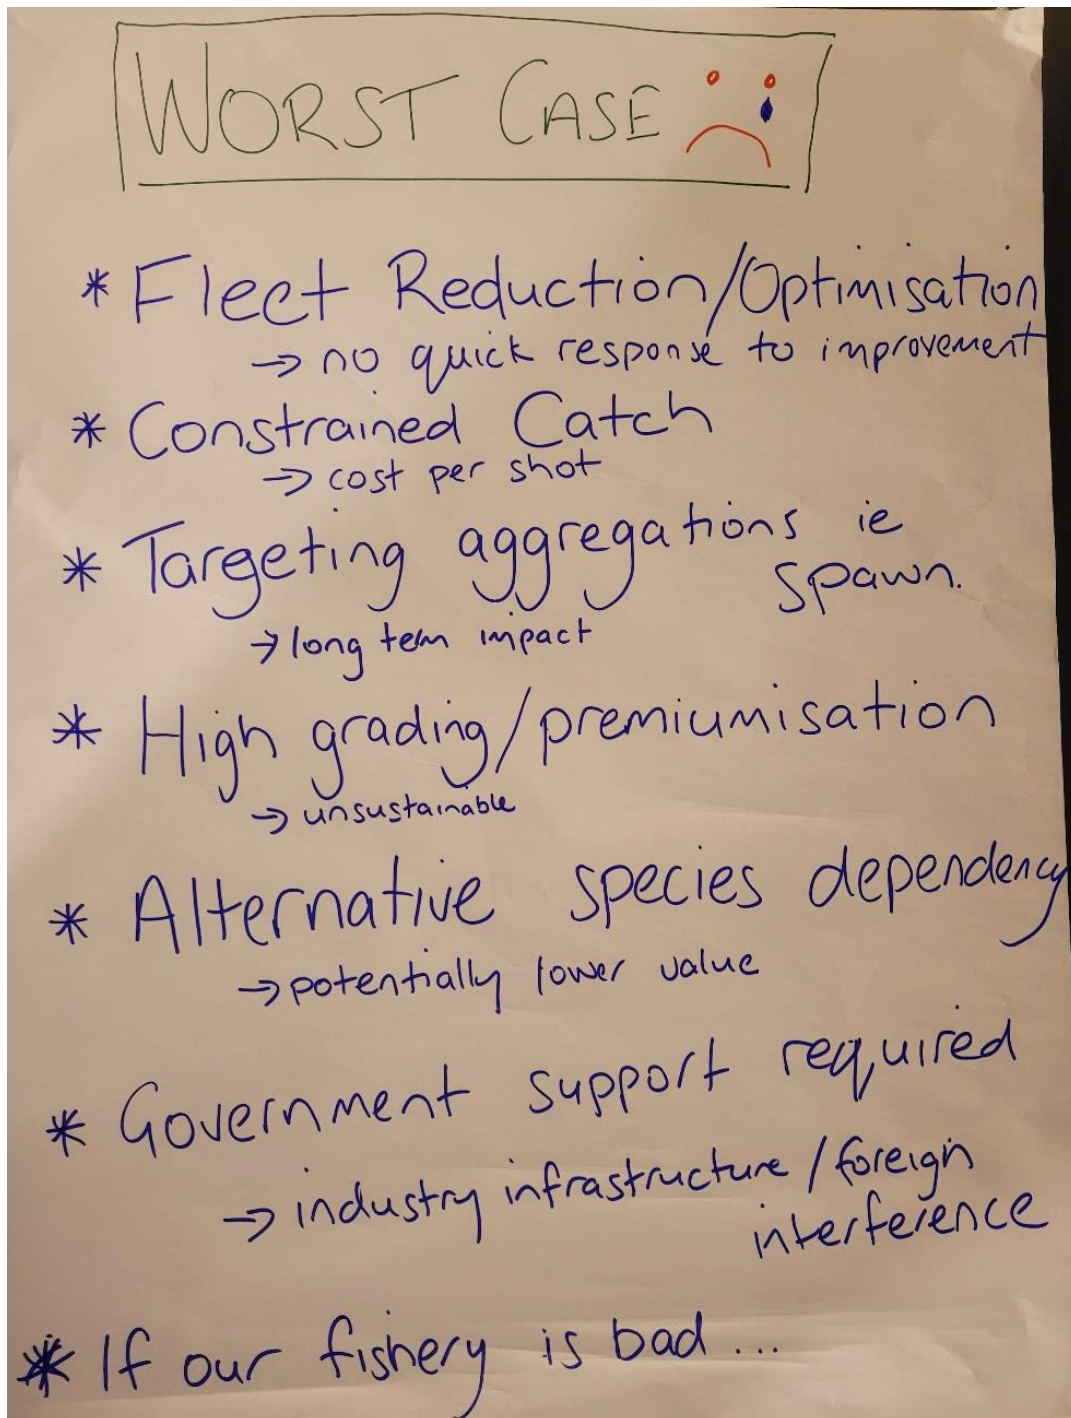 WORST CASE
* Fleet Reduction/Optimisation
→ no quick response to improvement
* Constrained Catch
→ cost per shot
* Targeting aggregations ie
spawn.
→ long tem impact
* High grading/premiumisation
→ unsustainable
* Alternative species dependency
→ potentially lower value
* Government support required
→ industry infrastructure / foreign
interference
* If our fishery is bad ...